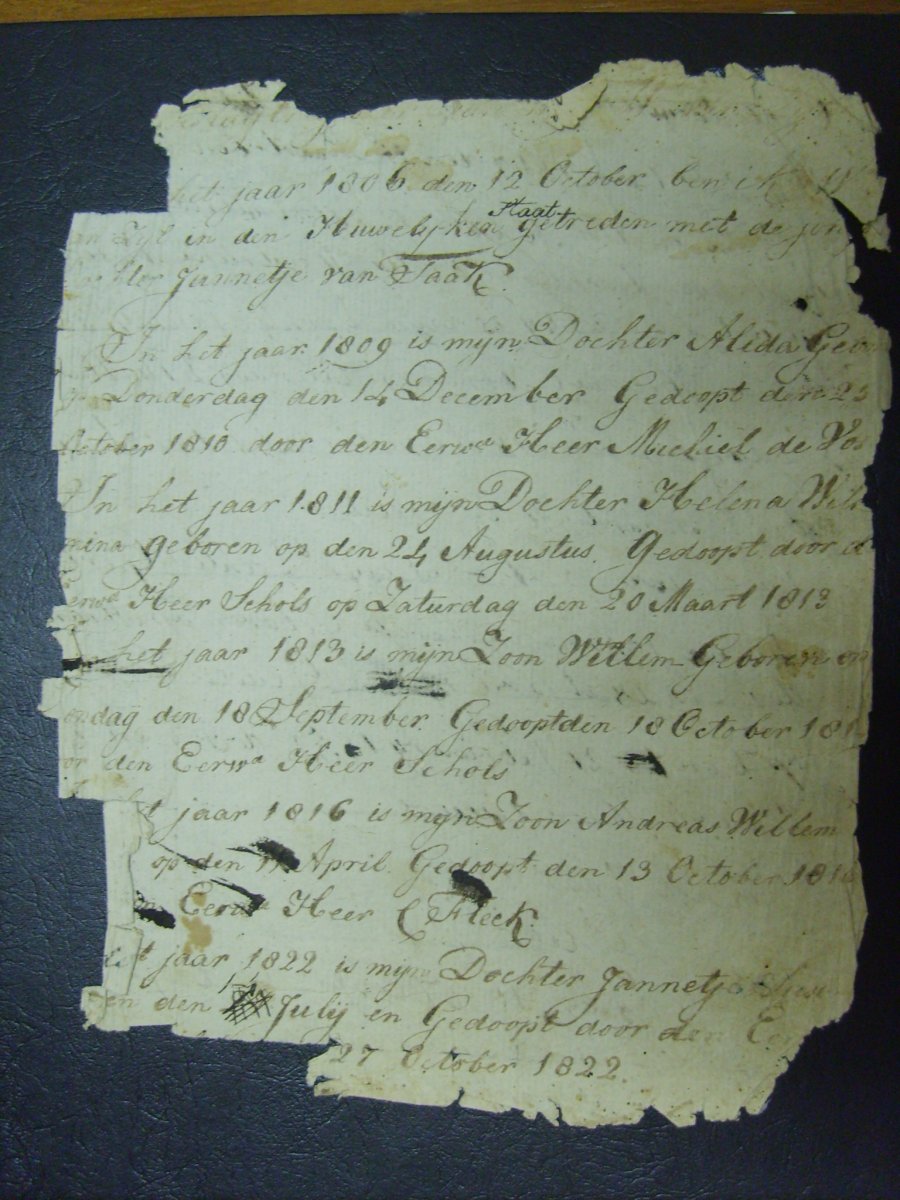 het jaar 1806 den 12 October ben ik
in den Huwelyken Staat getreden met de jon
Jannetje van Taak.
In het jaar 1809 is mijn Dochter Alida Geb
Donderdag den 14 December Gedoopt den 23
October 1810 door den Eerwe Heer Michiel de Vos
In het jaar 1811 is mijn Dochter Helena Wil
mina geboren op den 24 Augustus. Gedoopt door d
Eerwe Heer Schols op Zaturdag den 20 Maart 1813
In het jaar 1813 is mijn Zoon Willem Geboren op
ondag den 18 September Gedoopt den 18 October 181
or den Eerwe Heer Schols
t jaar 1816 is mijn Zoon Andreas Willem
op den 11 April. Gedoopt den 13 October 1816
Eerwe Heer C Fleck.
t jaar 1822 is mijn Dochter Jannetje
en den July en Gedoopt door den E
27 October 1822.